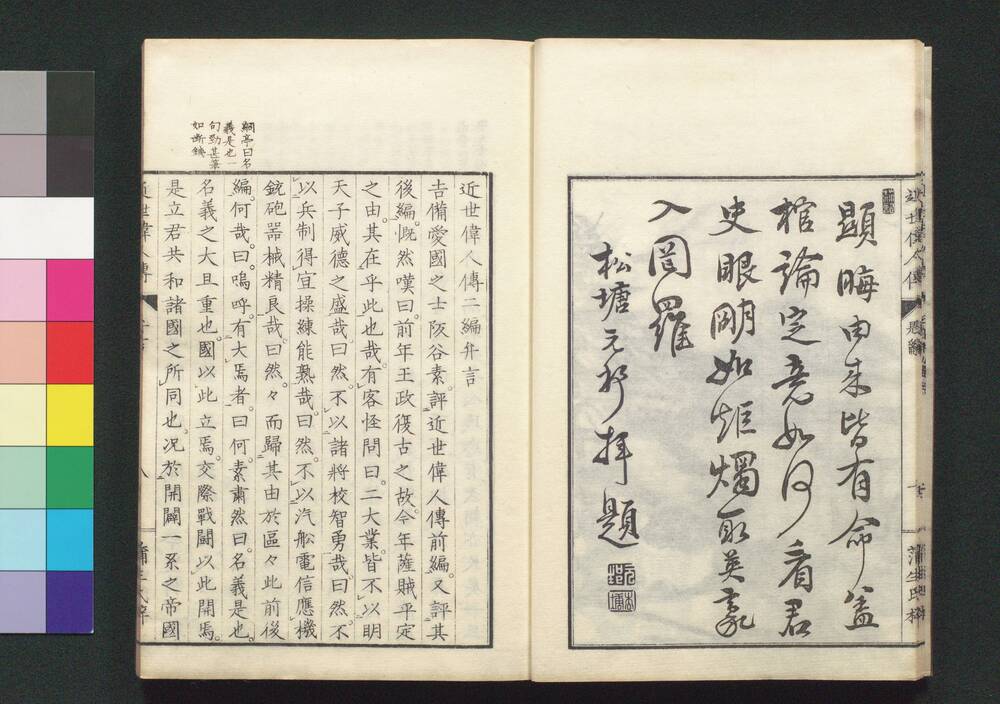 近世偉人傳
蒲生氏梓
顯晦由来皆有命蓋
棺論定意如何看君
史眼明如炬燭取英豪
入罔羅
松塘元邦拜題
近世偉人傳二編弁言
吉備愛國之士阪谷素。評近世偉人傳前編。又評其
後編。慨然嘆曰。前年王政復古之故。今年薩賊平定
之由。其在乎此也哉。有客怪問曰。二大業。皆不以明
天子威德之盛哉。曰然。不以諸將校智勇哉。曰然。不
以兵制得宜操練能熟哉。曰然。不以汽船電信應機
銃砲器械精良哉。曰然。々而歸其由於區々此前後
編。何哉。曰。嗚呼。有大焉者。曰何。素肅然曰。名義是也。
名義之大且重也。國以此立焉。交際戰鬪以此開焉。
是立君共和諸國之所同也。况於開闢一系之帝國
絅亭曰名
義是也一
句勁甚筆
如斬鐵
近世偉人傳
八
蒲生氏梓